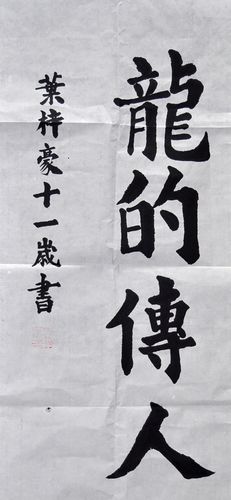 龍的傳人
葉梓豪十一歲書